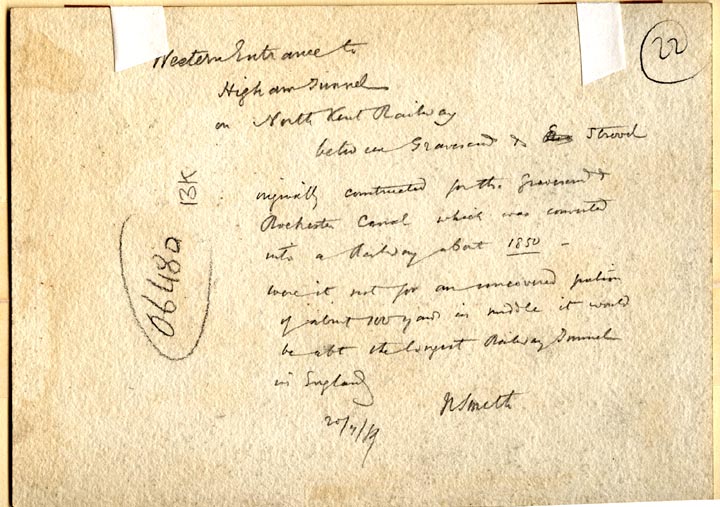 22
Western Entrance to
Higham Tunnel
on North Kent Railway
between Gravesend & Strood
originally constructed for the Gravesend &
Rochester Canal which was converted
into a Railway about 1850 -
were it not for an uncovered portion
of about 100 yards in middle it would
be abt the longest Railway Tunnel
in England
Smith
20/7/
0648a BK